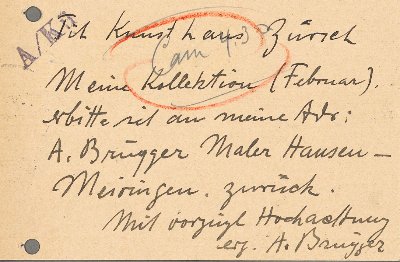 Kunsthaus Zürich
Meine Kollektion (Februar).
erbitte an meine Adr:
A. Brügger Maler Hausen –
Meiringen. zurück.
Mit vorzügl Hochachtung
A. Brügger
A/K
am